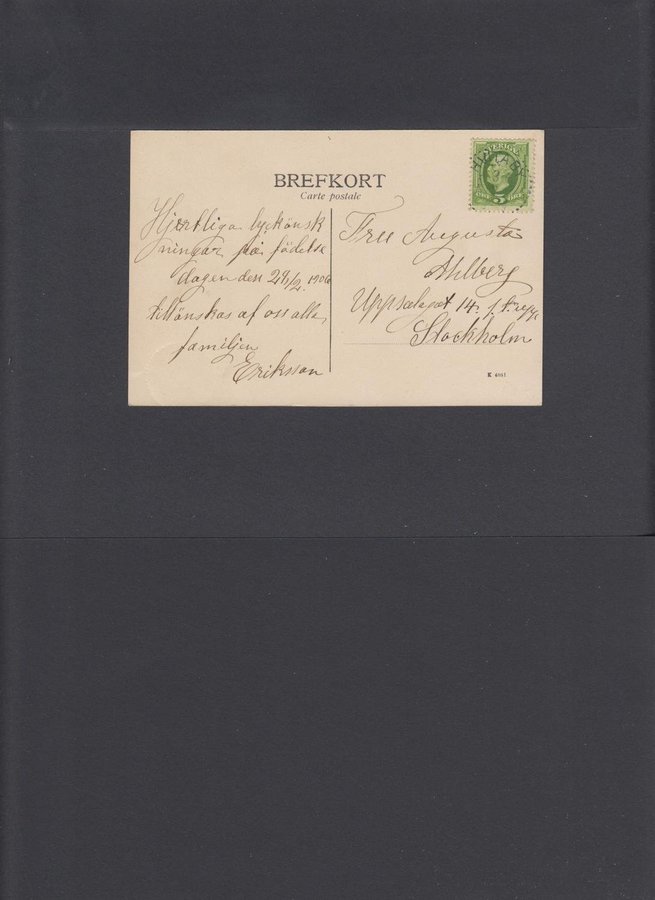 BREFKORT
Carte postale
SVERIGE
5
Hjertliga lyckönsk
ningar på födelse
dagen den 28/2 1906
tillönskas af oss alla
familjen
Eriksson
Fru Augusta
Ahlberg
Uppsalagat 14
Stockholm